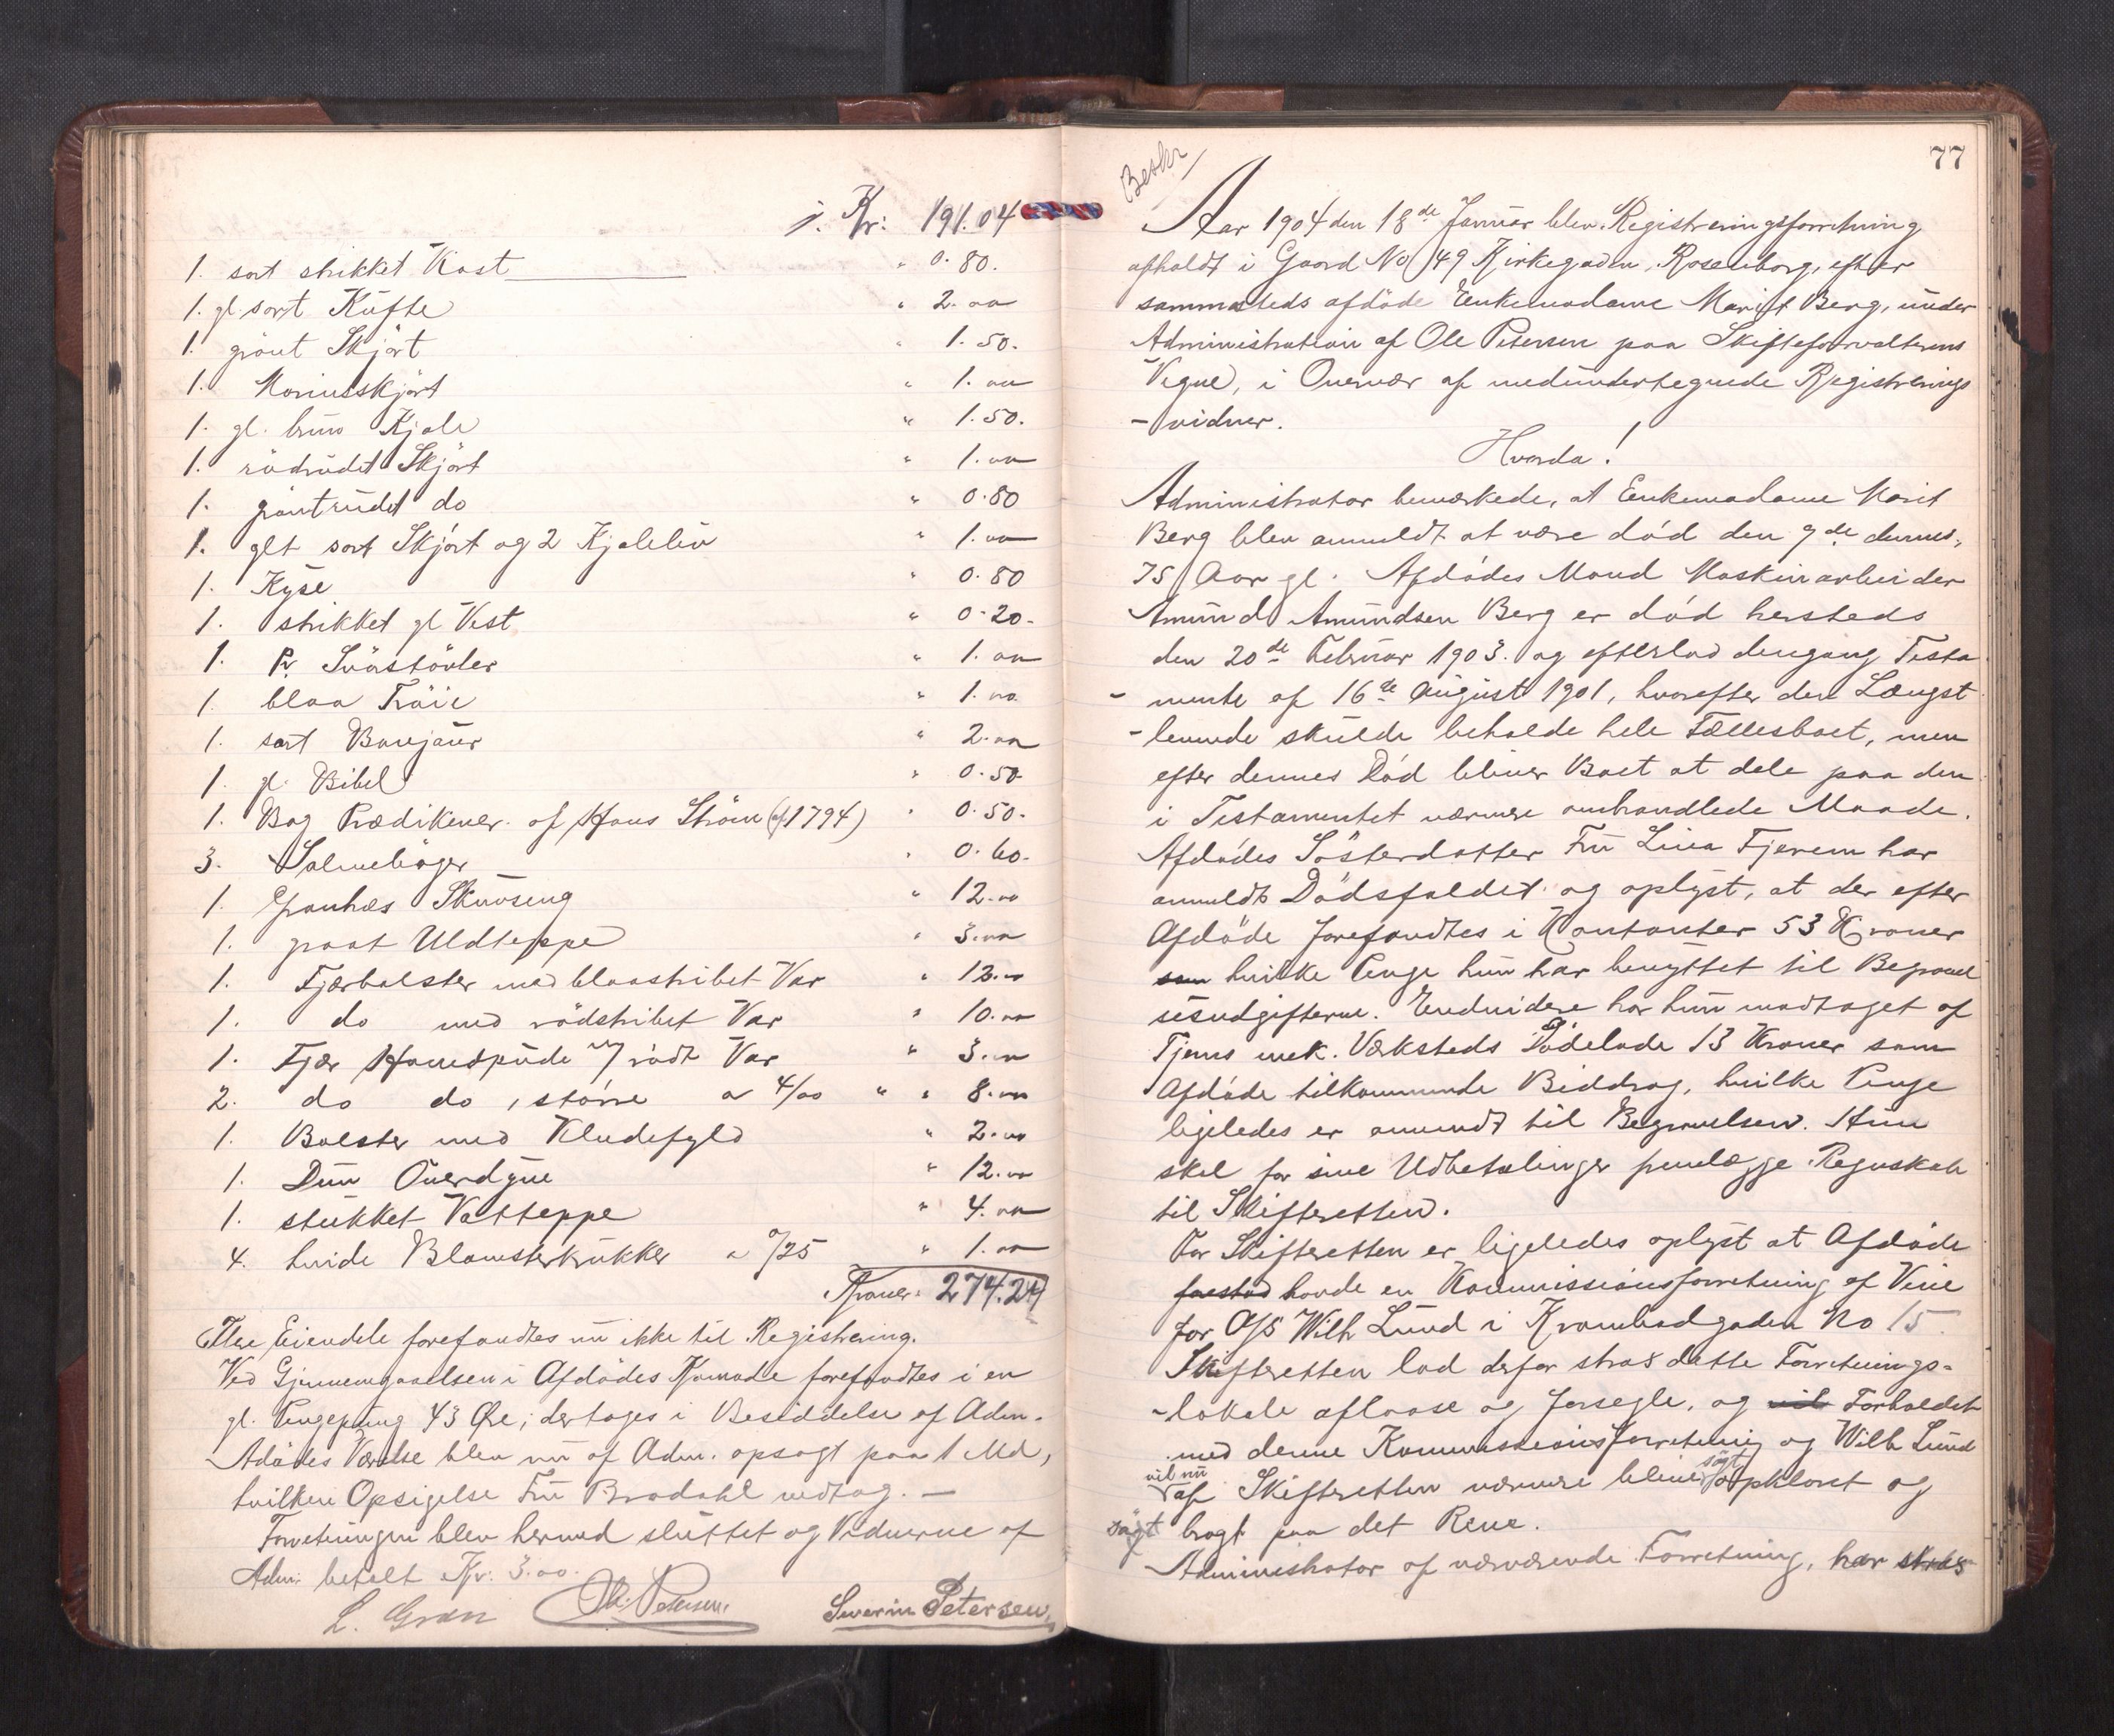 i. Kr: 191.04
1. sort strikket Kast " 0.80.
1. gl. sort Kufte " 2.00
1. grönt Skjört " 1.50.
1. Skjört " 1.00
1. gl. brun Kjole " 1.50.
1. rödrudet Skjört " 1.00
1. gröntrudet do " 0.80
1. glt sort Skjört og 2 Kjoleliv " 1.00
1. Kyse " 0.80
1. strikket gl Vest " 0.20.
1. Pr. Snöstövler " 1.00
1. blaa Tröie " 1.00
1. sort " 2.00
1. gl. Bibel " 0.50
1. Bog Prædikener af Hans Ström (af 1794) " 0.50.
3. Salmebøger " 0.60.
1. Granhæs Skuvseng " 12.00
1. graat Uldteppe " 3.00
1. Fjærbolster med blaastribet Var " 12.00
1. do med rödstribet Var " 10.00
1. Fjær Hovedpude m/ rödt Var " 3.00
2. do do, större a 4/00 " " 8.00
1. Bolster med Kludefyld " 2.00
1. Dun Overdyne " 12.00
1. stukket Vatteppe " 4.00
4. hvide Blomsterkrukker a 0/25 " 1.00
Kroner: 274.24
Flere Eiendele forefandtes nu ikke til Registrering.
Ved Gjennemgaaelsen i Afdödes Komode forefandtes i en
gl. Pengepung 43 Øre; dertoges i Besiddelse af Adm.
Adödes Værelse blev nu af Adm. opsagt paa 1 Md,
hvilken Opsigelse Fru Brodahl vedtog. —
Forretningen blev hermed sluttet og Vidnerne af
Adm. betalt Kr. 3.00.
L. Gran Ole Petersen Severin Petersen
77
Beskr
Aar 1904 den 18de Januar blev Registreringsforretning
afholdt i Gaard No 49 Kirkegaden, Rosenborg, efter
sammesteds afdöde Enkemadame Marit Berg, under
Administration af Ole Petersen paa Skifteforvalterens
Vegne, i Overvær af medundertegnede Registrerings
-vidner.
Hvorda!
Administrator bemærkede, at Enkemadame Marit
Berg blev anmeldt at være död den 9de dennes,
75 Aar gl. Afdödes Mand Maskinarbeider
Amund Amundsen Berg er död hersteds
den 20de Februar 1903. og efterlod dengang Testa
- mente af 16de August 1901, hvorefter den Længst
- levende skulde beholde hele Fællesboet, men
efter dennes Död bliver Boet at dele paa den
i Testamentet nærmere omhandlede Maade.
Afdödes Sösterdatter Fru Lina Fjærem har
anmeldt Dödsfaldet og oplyst, at der efter
Afdöde forefandtes i Kontanter 53 Kroner
som hvilke Penge hun har benyttet til Begravel
sesudgifterne. Endvidere har hun modtaget af
Tjems mek. Værksteds Dödelade 13 Kroner som
Afdöde tilkommende Biddrag, hvilke Penge
ligeledes er anvendt til Begravelsen. Hun
skal for sine Udbetalinger fremlægge Regnskab
til Skifteretten.
For Skifteretten er ligeledes oplyst at Afdöde
forestod havde en Kommissionsforretning af Vine
for A/S Wilh Lund i Krambodgaden No 15.
Skifteretten lod derfor strax dette Forretnings-
-lokale aflaase og forsegle, og vil Forholdet
med denne Kommissionsforretning og Wilh Lund
vil nu af Skifteretten nærmere blive sögt opklaret og
sögt bragt paa det Rene.
Administrator af nærværende Forretning, har straks